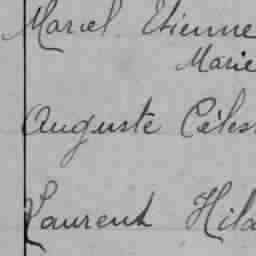 Marcel Etienne
Marie
Auguste Céles
Laurent Hila